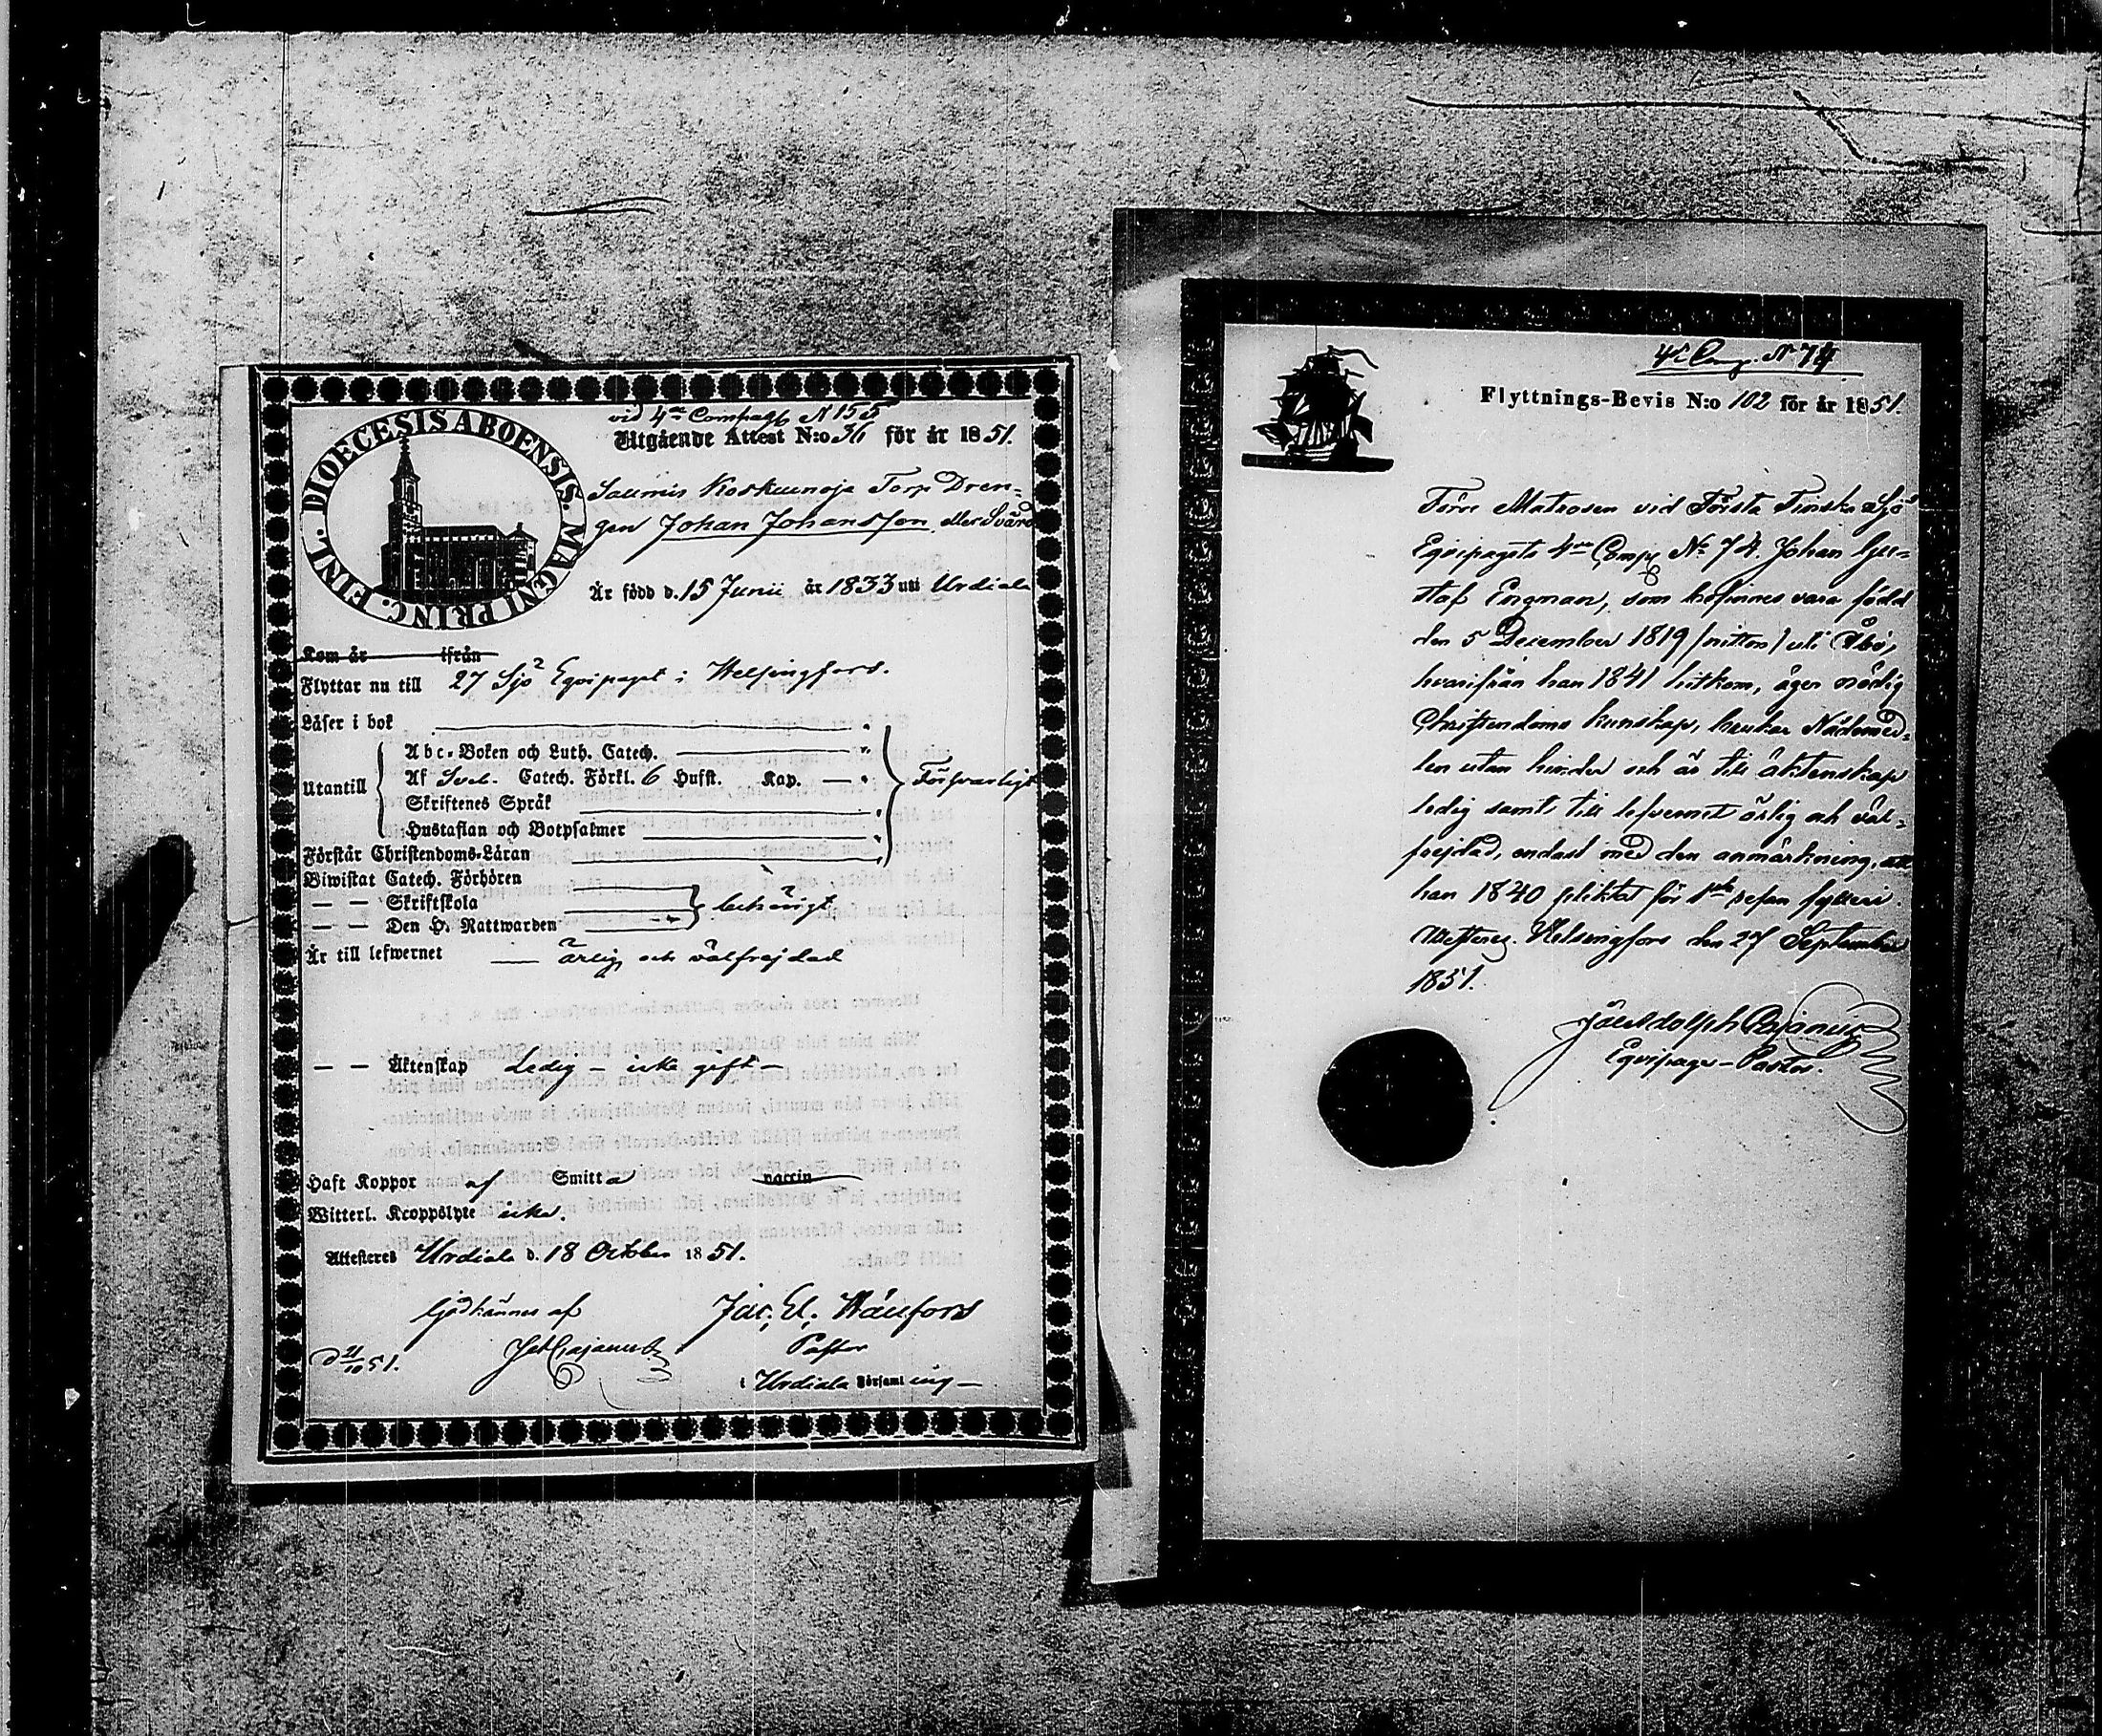 DIOECESIS ABOENSIS. MAGNI PRINC. FINL.
vid 4de Compag N 155
Utgående Attest N:o 36 för år 1851.
Saumis Koskuenoja Torp Dren-
gen Johan Johansson eller Svärd
Är född d. 15 Junii år 1833 uti Urdiala
Kom år ifrån
Flyttar nu till 27 Sjö Eqvipaget i Helsingfors.
Läser i bok
Utantill
Abc-Boken och Luth. Catech.
Af Sveb. Catech. Förkl. 6 Hufst. Kap. —
Skriftenes Språk
Hustaflan och Botpsalmer
Försvarligt
Förstår Christendoms-Läran
Biwistat Catech. Förhören
— — Skriftskola
— — Den H. Nattwarden
behörigt
Är till lefwernet — ärlig och välfrejdad
— — Äktenskap Ledig – icke gift –
Haft Koppor af Smitta vaccin
Witterl. Kroppslyte icke.
Attesteras Urdiala d. 18 October 1851.
Godkännes af
Jac. El. Wänfors
Pastor
d 21/10 51.
i Urdiala Församling —
4de Comp. N 74
Flyttnings-Bevis N:o 102 för år 1851.
Förre Matrosen vid Första Finska Sjö
Eqvipagets 4de Comp. No 74. Johan Gus-
taf Engman, som befinnes vara född
den 5 December 1819 /nitton/ uti Åbo,
hvarifrån han 1841 hitkom, äger nödig
Christendoms kunskap, brukar Nådemed-
len utan hinder och är till äktenskap
ledig samt till lefvernet ärlig och väl-
frejdad, endast med den anmärkning, att
han 1840 pliktat för 1sta resan fylleri.
Attesteras. Helsingfors den 27 September
1851.
Eqvipage-Pastor.